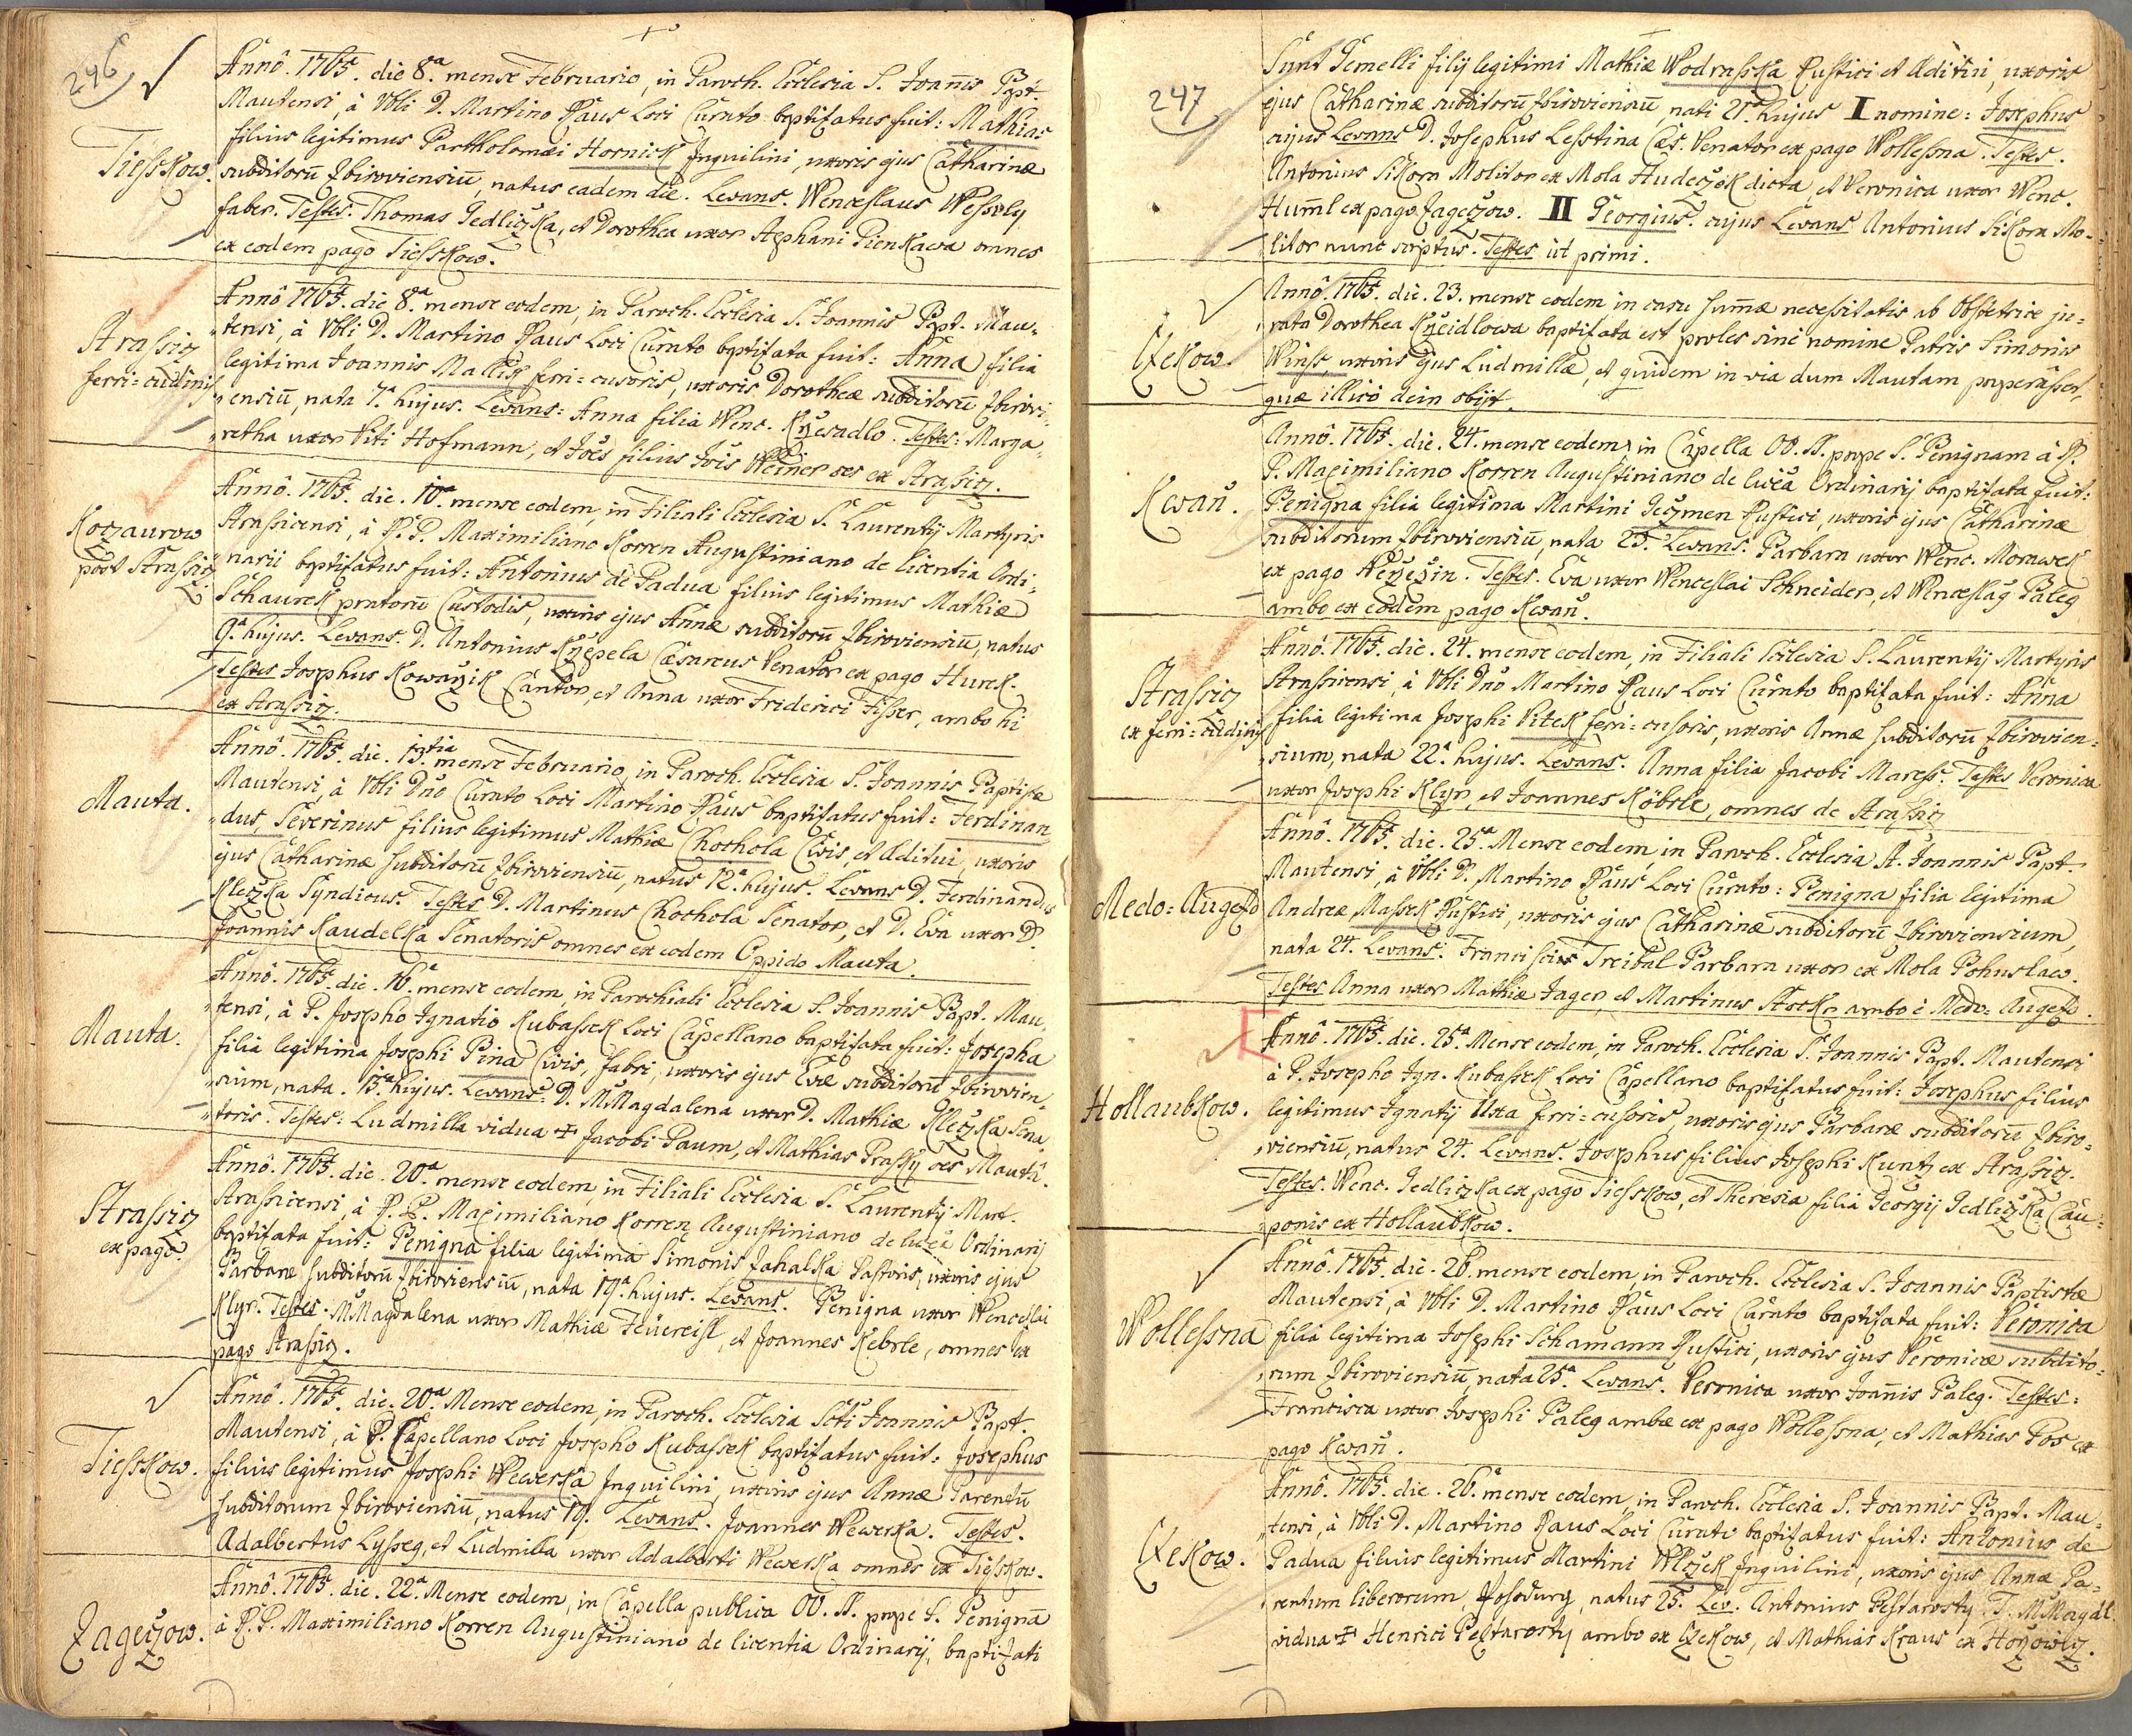 246
Tiesskow.
Annô. 1765. die 8.ª mense Februario, in Paroch. Ecclesia S. Joanñis Bapt.
Mautensi, à Vbli D. Martino Paus Loci Curato baptisatus fuit: Mathias
filius legitimus Bartholomæi Hornick Inquilini, uxoris ejus Catharinæ
subditorũ Zbiroviensiũ, natus eadem die. Levans. Wenceslaus Wessely
faber. Testes. Thomas Jedliczka, et Dorothea uxor Stephani Pienkawa omnes
ex eodem pago Tiesskow.
Strassicz
ferri=cudinis
Annô 1765. die 8.ª mense eodem, in Paroch. Ecclesia S. Joannis Bapt. Mau=
tensi, à Vbli D. Martino Paus Loci Curato baptisata fuit: Anna filia
legitima Joannis Mallik ferri=cusoris, uxoris Dorotheæ subditorũ Zbirovi=
ensiũ, nata 7.ª hujus. Levans: Anna filia Wenc. Knesadlo. Testes: Marga=
retha uxor Viti Hofmann, et Joẽs filius Jois Weiner oẽs ex Strassicz.
Koczaurow
post Strassicz
Annô. 1765. die. 10.ª mense eodem, in Filiali Ecclesia S. Laurentij Martyris
Strassicensi, à P. P. Maximiliano Korren Augustiniano de licentia Ordi=
narii baptisatus fuit: Antonius de Padua filius legitimus Mathiæ
Schaurek pratorũ Custodis, uxoris ejus Annæ subditorũ Zbiroviensiũ, natus
9.ª hujus. Levans. D. Antonius Krzepela Cæsareus Venator ex pago Hurek.
Testes Josephus Kowarzik Cantor, et Anna uxor Friderici Fisser, ambo hi
ex Strassicz.
Mauta.
Annô. 1765. die. 13.tia mense Februario, in Paroch. Ecclesia S. Joannis Baptistæ
Mautensi, à Vbli Dño Curato Loci Martino Paus baptisatus fuit: Ferdinan
dus, Severinus filius legitimus Mathiæ Chochola Civis, et Æditui, uxoris
ejus Catharinæ subditorũ Zbiroviensiũ, natus 12.ª hujus. Levans D. Ferdinandus
Kleczka Syndicus. Testes D. Martinus Chochola Senator, et D. Eva uxor D.
Joannis Kaudelka Senatoris omnes ex eodem Oppido Mauta.
Mauta.
Annô. 1765. die. 16.ª mense eodem, in Parochiali Ecclesia S. Joannis Bapt. Mau=
tensi, à P. Josepho Ignatio Kubassek Loci Capellano baptisata fuit: Josepha
filia legitima Josephi Pina Civis, fabri, uxoris ejus Evæ subditorũ Zbirovien=
sium, nata. 15.ª hujus. Levans: D. MMagdalena uxor D. Mathiæ Kleczka Sena=
toris. Testes: Ludmilla vidua ✝ Jacobi Baum, et Mathias Prassy oẽs Mautâ.
Strassicz
ex pago.
Annô. 1765. die. 20.ª mense eodem, in Filiali Ecclesia S. Laurentij Mart.
Strassicensi, à P. P. Maximiliano Korren Augustiniano de licẽa Ordinarij
baptisata fuit: Benigna filia legitima Simonis Jahalka Pastoris, uxoris ejus
Barbaræ subditorũ Zbiroviensiũ, nata 19.ª hujus. Levans. Benigna uxor Wenceslai
Klyr. Testes. MMagdalena uxor Mathiæ Feuereisl, et Joannes Kebrle, omnes ex
pago Strassicz.
Tiesskow.
Annô. 1765. die. 20.ª Mense eodem, in Paroch. Ecclesia Scti Joannis Bapt.
Mautensi, à P. Capellano Loci Josepho Kubassek baptisatus fuit: Josephus
filius legitimus Josephi Wewerka Inquilini, uxoris ejus Annæ Parentũ
subditorum Zbiroviensiũ, natus 19. Levans. Joannes Wewerka. Testes.
Adalbertus Lysseg, et Ludmilla uxor Adalberti Wewerka omnes ex Tiesskow.
Zageczow.
Annô. 1765. die. 22.ª Mense eodem, in Capella publica OO. SS. prope S. Benignã
à P. P. Maximiliano Korren Augustiniano de licentia Ordinarij, baptisati
247
Sunt Gemelli filij legitimi Mathiæ Wodrasska Rustici et Æditui, uxoris
ejus Catharinæ subditorũ Zbiroviensiũ, nati 21.ª hujus I nomine: Josephus
cujus Levans D. Josephus Lesstina Cæs. Venator ex pago Wollessna. Testes.
Antonius Sikora Molitor ex Mola Hudeczek dicta, et Veronica uxor Wenc.
Huml ex pago Zageczow. II Georgius. cujus Levans Antonius Sikora Mo=
litor nunc scriptus. Testes ut primi.
Czekow.
Annô. 1765. die. 23. mense eodem in casu summæ necessitatis ab Obstetrice ju=
rata Dorothea Kneidlowa baptisata est proles sine nomine Patris Simonis
Winss, uxoris ejus Ludmillæ, et quidem in via dum Mautam properasset,
quæ illicò dein obijt.
Kwan.
Annô. 1765. die. 24. mense eodem, in Capella OO. SS. prope S. Benignam à P.
P. Maximiliano Korren Augustiniano de licẽa Ordinarij baptisata fuit:
Benigna filia legitima Martini Geczmen Rustici, uxoris ejus Catharinæ
subditorum Zbiroviensiũ, nata 23. Levans. Barbara uxor Wenc. Morawek
ex pago Neÿezin. Testes. Eva uxor Wenceslai Schneider, et Wenceslaus Paleg
ambo ex eodem pago Kwan.
Strassicz
ex ferri=cudinis
Annô. 1765. die. 24. mense eodem, in Filiali Ecclesia S. Laurentij Martyris
Strassicensi, à Vbli Dño Martino Paus Loci Curato baptisata fuit: Anna
filia legitima Josephi Vitek ferri=cusoris, uxoris Annæ subditorũ Zbirovien=
sium, nata 22.ª hujus. Levans. Anna filia Jacobi Maress. Testes Veronica
uxor Josephi Klyr, et Joannes Köbrle, omnes de Strassicz
Medo=Augezd
Annô. 1765. die. 25.ª Mense eodem in Paroch. Ecclesia St. Joannis Bapt.
Mautensi, à Vbli D. Martino Paus Loci Curato: Benigna filia legitima
Andreæ Massek Rustici, uxoris ejus Catharinæ subditorũ Zbiroviensium,
nata 24. Levans: Francisci Treybal Barbara uxor ex Mola Bohuslaw.
Testes Anna uxor Mathiæ Jager, et Martinus Stocker ambo è Medo=Augezd.
Hollaubkow.
Annô. 1765. die. 25.ª Mense eodem, in Paroch. Ecclesia S. Joannis Bapt. Mautensi
à P. Josepho Ign. Kubassek Loci Capellano baptisatus fuit: Josephus filius
legitimus Ignatij Uxa ferri=cusoris, uxoris ejus Barbaræ subditorũ Zbiro=
viensiũ, natus 24. Levans. Josephus filius Josephi Kuntz ex Strassicz.
Testes. Wenc. Jedliczka ex pago Tiesskow, et Theresia filia Georgij Jedliczka Cau=
ponis ex Hollaubkow.
Wollessna
Annô. 1765. die. 26. mense eodem, in Paroch. Ecclesia S. Joannis Baptistæ
Mautensi, à Vbli D. Martino Paus Loci Curato baptisata fuit: Veronica
filia legitima Josephi Schamann Rustici, uxoris ejus Veronicæ subdito=
rum Zbiroviensiũ, nata 25.ª Levans. Veronica uxor Joañis Paleg. Testes:
Francisca uxor Josephi Paleg ambæ ex pago Wollessna, et Mathias Pos ex
pago Kwan.
Czekow.
Annô. 1765. die. 26.ª mense eodem, in Paroch. Ecclesia S. Joannis Bapt. Mau=
tensi, à Vbli D. Martino Paus Loci Curato baptisatus fuit: Antonius de
Padua filius legitimus Martini Wlczek Inquilini, uxoris ejus Annæ Pa=
rentum liberorum, natus 25. Lev. Antonius Pestarosty. T. MMagdl.
vidua ✝ Henrici Pestarosty ambo ex Czekow, et Mathias Kraus ex Horzowicz.